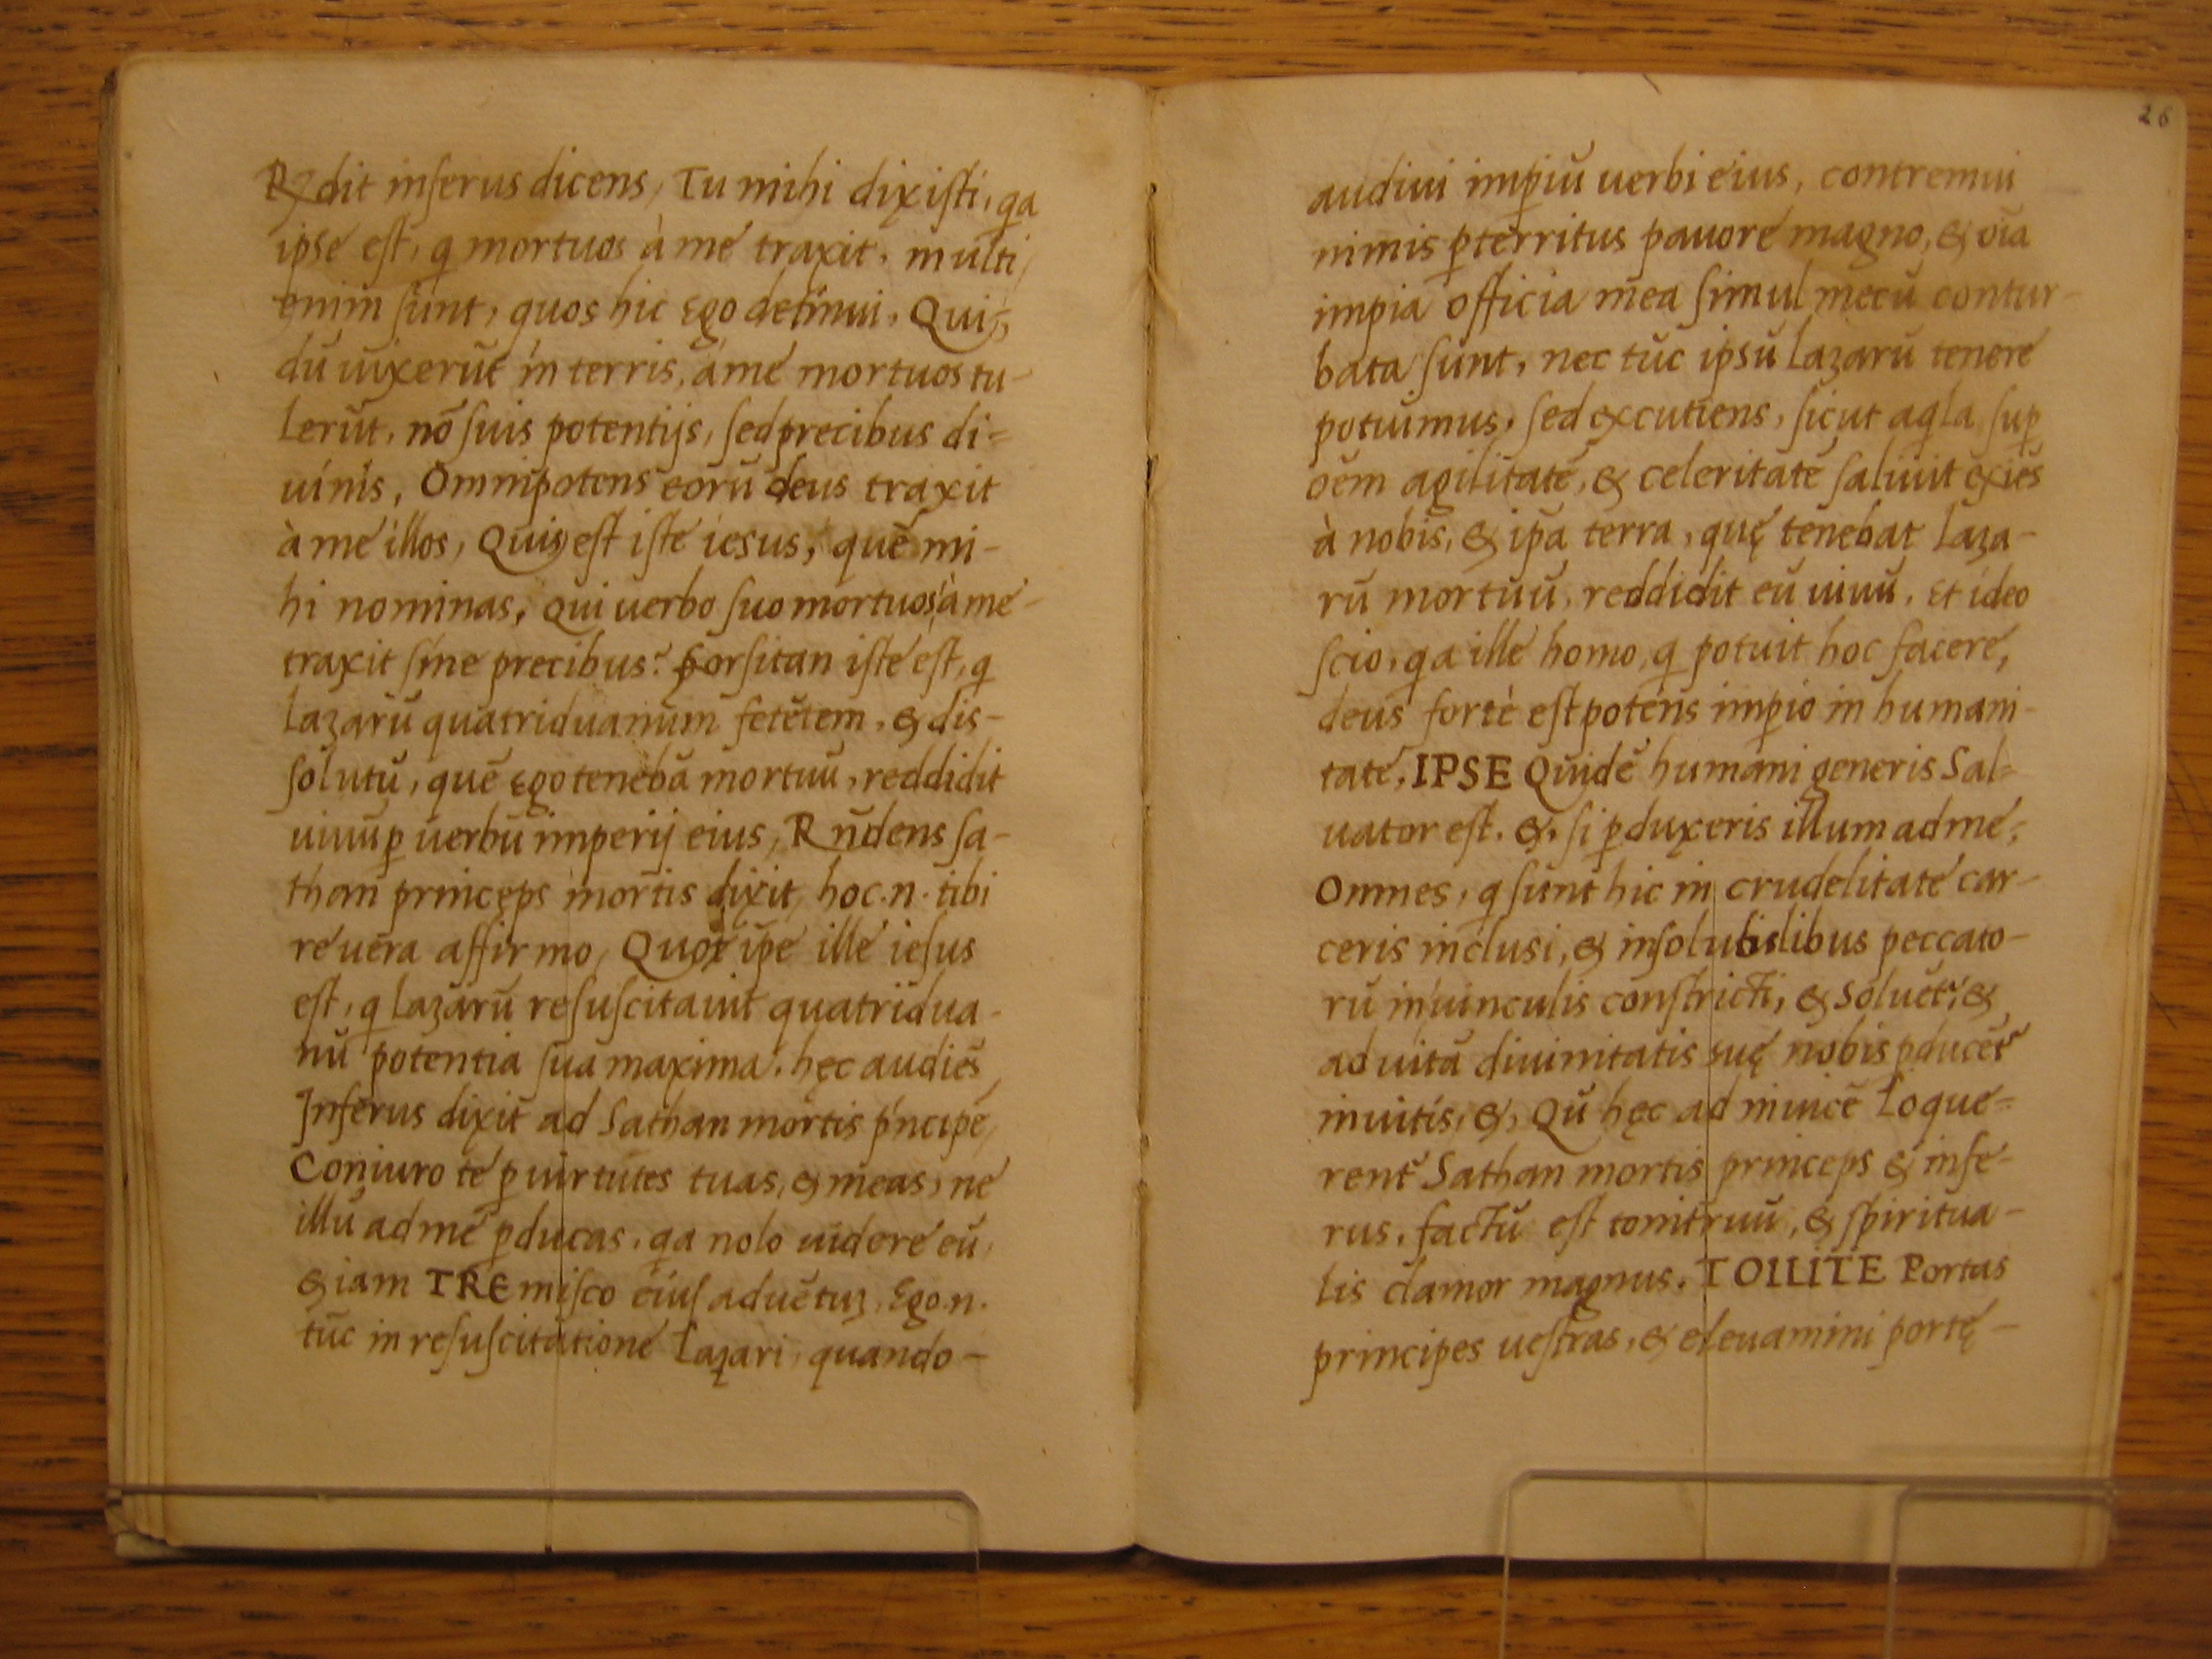 Rx̄dit inferus dicens, Tu mihi dixisti, qa
ipse est, q mortuos à me traxit. multi
enim sunt, quos hic Ego detinui. Qui,
dū uixerūt in terris, à me mortuos tu-
lerūt, nō suis potentijs, sed precibus di=
uinis, Omnipotens eorū deus traxit
à me illos, Quis est iste iesus, quē mi-
hi nominas, qui uerbo suo mortuos à me-
traxit sine precibus? Forsitan iste est, q
Lazarū quatriduanum fetētem, & dis-
solutū, quē Ego tenebā mortuū, reddidit
uiuū p uerbū imperij eius, Rn̄dens sa-
than princeps mortis dixit, hoc .n. tibi
reuera affirmo, Quod ip̄e ille iesus
est, q Lazarū resuscitauit quatridua-
nū potentia sua maxima. hęc audiēs
Inferus dixit ad Sathan mortis p'ncipē,
Coniuro te p uirtutes tuas, & meas, ne
illū ad me pducas, qa nolo uidere eū,
& iam TREmisco eius aduētuȝ, Ego .n.
tūc in resuscitatione Lazari, quando-
26
audiui impiū uerbi eius, contremui
nimis pterritus pauore magno, & oīa
impia officia mea simul mecū contur-
bata sunt, nec tūc ipsū Lazarū tenere
potuimus, sed excutiens, sicut aqla sup
oēm agilitatē, & celeritatē saliuit exiēs
à nobis, & ip̄a terra, quę tenebat Laza-
rū mortuū, reddidit eū uiuū, Et ideo
scio, qa ille homo, q potuit hoc facere,
deus fortè est potens impio in humani-
tate, IPSE Quidē humani generis Sal=
uator est. &, si pduxeris illum ad me,
Omnes, q sunt hic in crudelitate car-
ceris inclusi, & insolubilibus peccato-
rū in uinculis constricti, & Soluēt', &
ad uitā diuinitatis suę nobis pducēt'
inuitis, &, Qū hęc ad inuicē Loque=
rent' Sathan mortis princeps & infe-
rus, factū est tonitruū, & spiritua-
lis clamor magnus. TOLLITE Portas
principes uestras, & eleuamini portę -